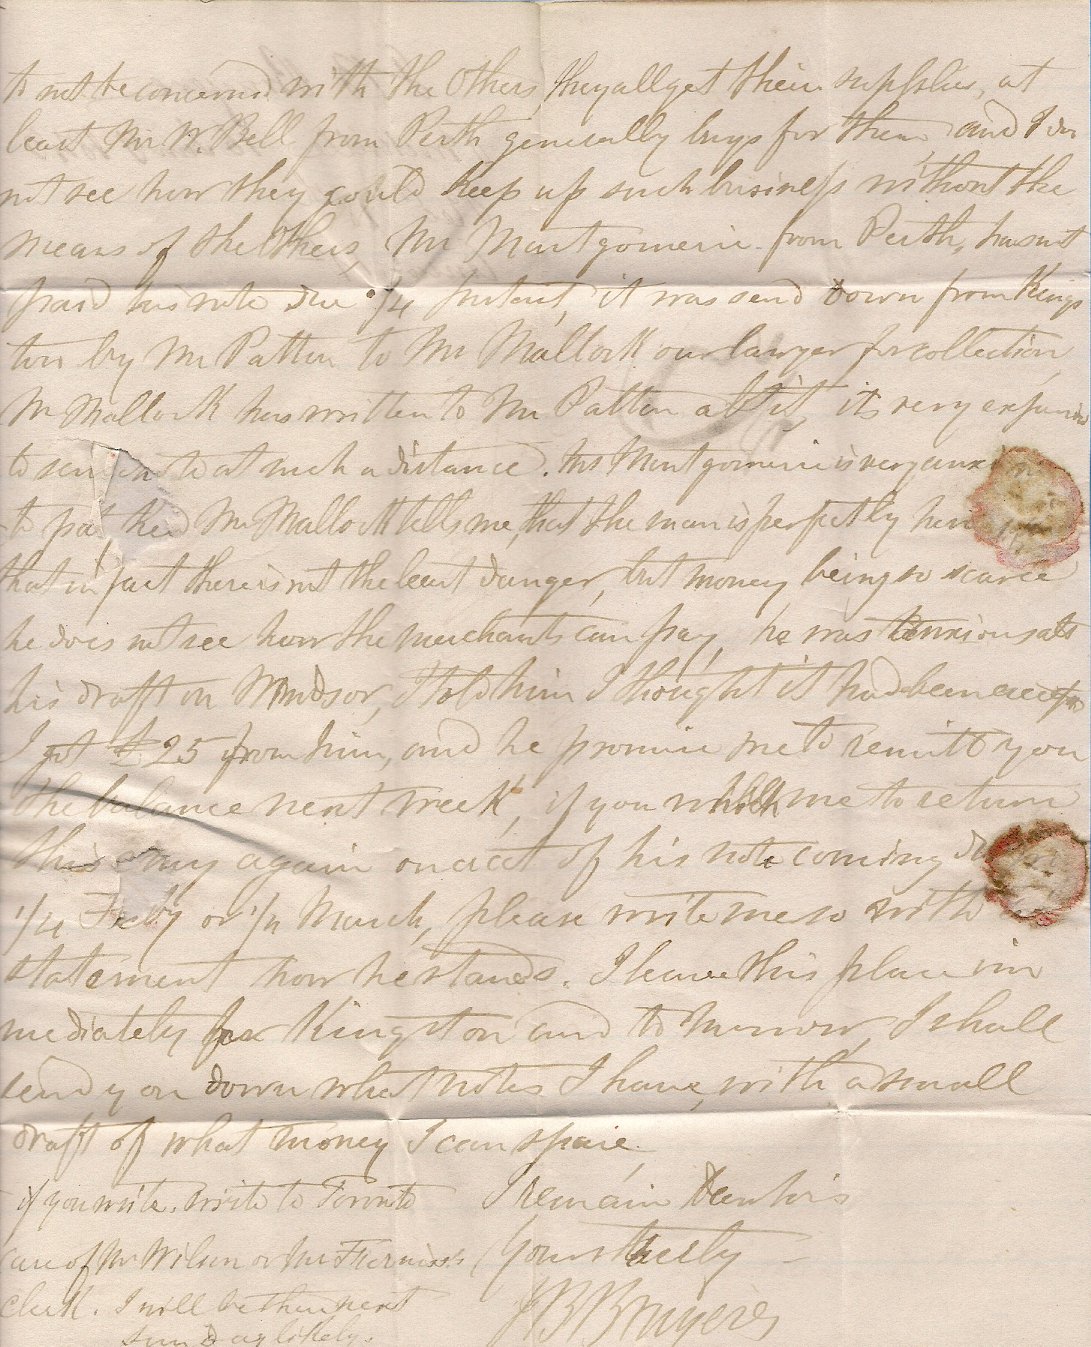 to not be concerned with the Others, they all get their supplies, at
least Mr W. Bell from Perth generally buys for them and I do
not see how they could keep up such business without the
means of the Others, Mr Montgomerie from Perth, has not
paid his note due 1/4 it was send down from Kings
ton by Mr Patton to Mr Mallock our lawyer for collection
Mr Mallock has written to Mr Patton abt it, its very
to at such a distance. Mr Montgomerie is very
to Mr Mallock tells me, that the man is perfectly
that in fact there is not the least danger, but money being so scarce
he does not see how the merchants can pay, he was
his draft on Windsor, I told him I thought it had been
I got £25 from him, and he promise me to remitt you
the balance next week, if you me to return
this way again on acct of his note coming
1/4 Feby or 1/4 March, please write me so with
statement how he stands. I leave this place im
mediately for Kingston and to morrow I shall
send you down what notes I have, with a small
draft of what money I can spare
if you write. write to Toronto
care of Mr Wilson or
clerk. I will be there next
Sunday likely.
I remain Dear Sirs
Yours
JB Bruyeres